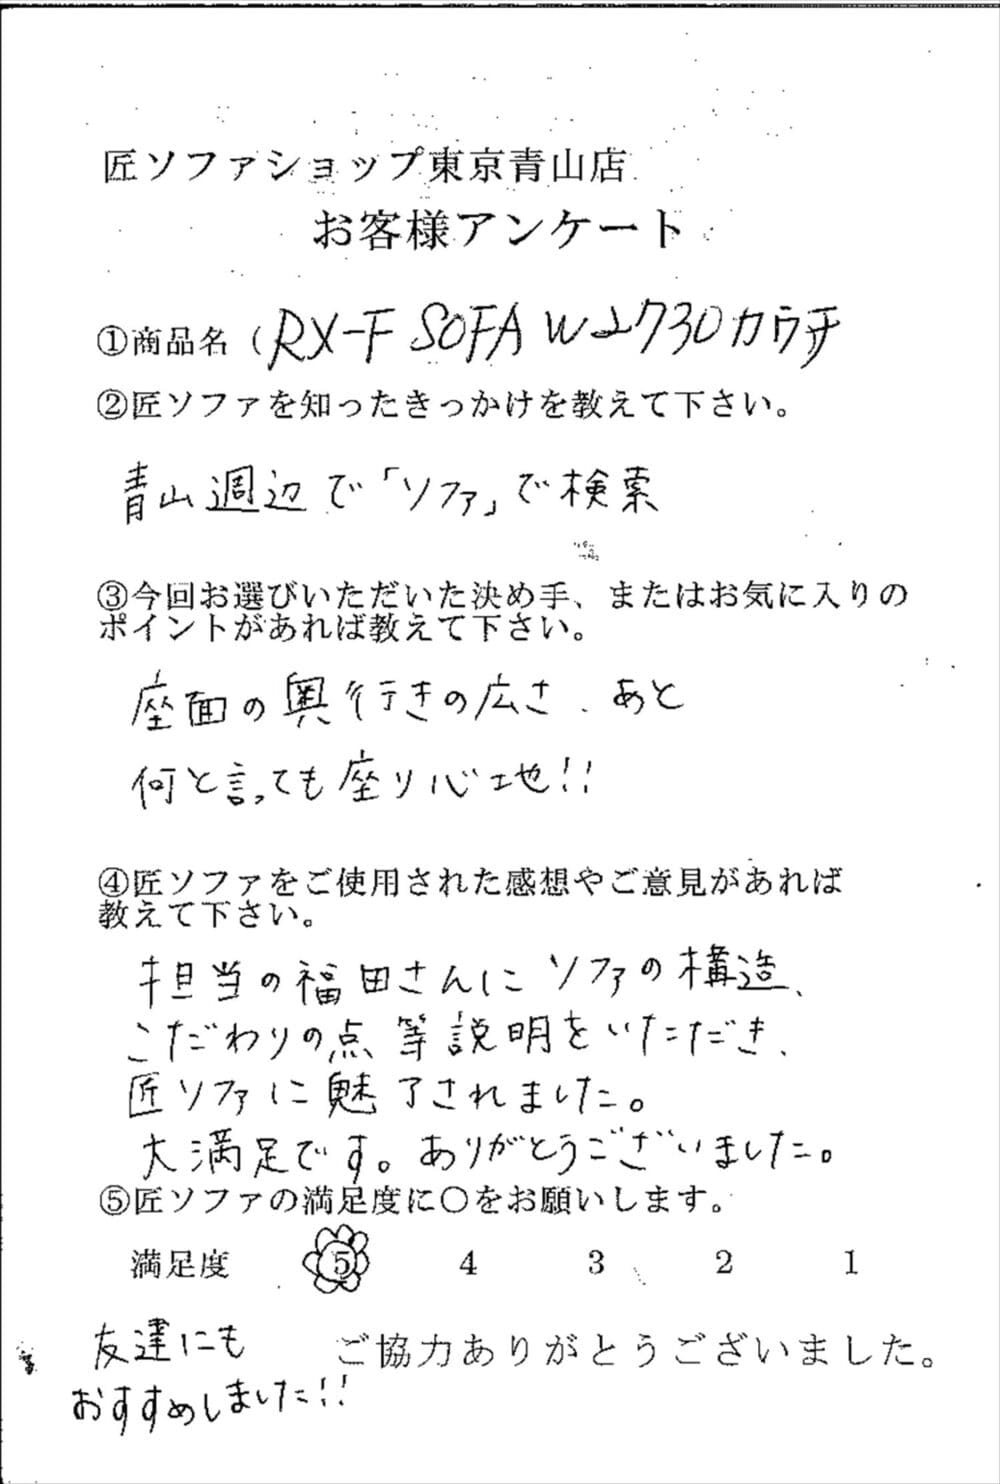 匠ソファショップ東京青山店
お客様アンケート
①商品名（RX-F SOFA W2730カウチ
②匠ソファを知ったきっかけを教えて下さい。
青山週辺で「ソファ」で検索
③今回お選びいただいた決め手、またはお気に入りの
ポイントがあれば教えて下さい。
座面の奥行きの広さ、あと
何と言っても座り心地!!
④匠ソファをご使用された感想やご意見があれば
教えて下さい。
担当の福田さんにソファの構造、
こだわりの点等説明をいただき、
匠ソファに魅了されました。
大満足です。ありがとうございました。
⑤匠ソファの満足度に〇をお願いします。
満足度 5 4 3 2 1
友達にも
おすすめしました!!
ご協力ありがとうございました。